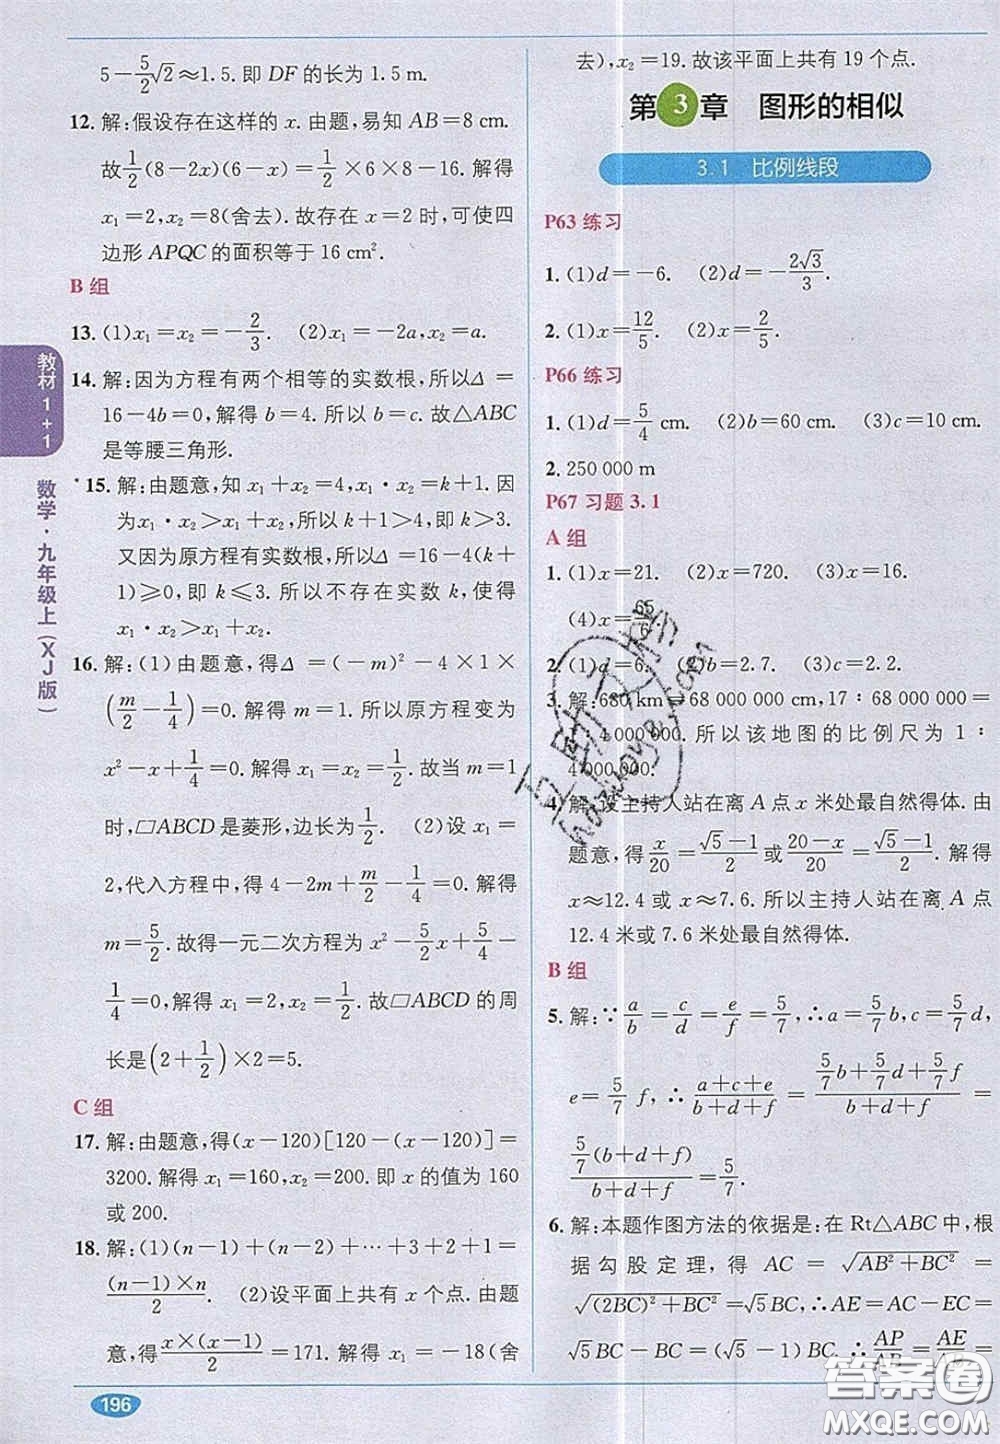 5－5/2√2≈1.5. 即 DF 的长为 1.5 m.
12. 解:假设存在这样的 x. 由题，易知 AB＝8 cm.
故 1/2(8－2x)(6－x)＝1/2×8×6－16. 解得
x₁＝2,x₂＝8(舍去). 故存在 x＝2 时,可使四
边形 APQC 的面积等于 16 cm².
B 组
13. (1)x₁＝x₂＝－2/3. (2)x₁＝－2a,x₂＝a.
14. 解:因为方程有两个相等的实数根,所以Δ＝
16－4b＝0,解得 b＝4. 所以 b＝c. 故△ABC
是等腰三角形.
*15. 解:由题意,知 x₁＋x₂＝4,x₁·x₂＝k＋1. 因
为x₁·x₂＞x₁＋x₂,所以 k＋1＞4,即 k＞3.
又因为原方程有实数根,所以Δ＝16－4(k＋
1)≥0,即 k≤3. 所以不存在实数 k,使得
x₁·x₂＞x₁＋x₂成立.
16. 解:(1)由题意,得Δ＝(－m)²－4×1×
(m/2－1/4)＝0. 解得 m＝1. 所以原方程变为
x²－x＋1/4＝0. 解得 x₁＝x₂＝1/2. 故当 m＝1
时,□ABCD 是菱形,边长为1/2. (2)设 x₁＝
2,代入方程中,得 4－2m＋m/2－1/4＝0. 解得
m＝5/2. 故得一元二次方程为 x²－5/2x＋5/4－
1/4＝0,解得 x₁＝2,x₂＝1/2. 故□ABCD 的周
长是(2＋1/2)×2＝5.
C 组
17. 解:由题意,得(x－120)[120－(x－120)]＝
3200. 解得 x₁＝160,x₂＝200. 即 x 的值为 160
或 200.
18. 解:(1)(n－1)＋(n－2)＋…＋3＋2＋1＝
(n－1)×n/2. (2)设平面上共有 x 个点. 由题
意,得x×(x－1)/2＝171. 解得 x₁＝－18(舍
去),x₂＝19. 故该平面上共有 19 个点.
第3章 图形的相似
3.1 比例线段
P63 练习
1. (1)d＝－6. (2)d＝－2√3/3.
2. (1)x＝12/5. (2)x＝2/5.
P66 练习
1. (1)d＝5/4 cm. (2)b＝60 cm. (3)c＝10 cm.
2. 250 000 m
P67 习题 3.1
A 组
1. (1)x＝21. (2)x＝720. (3)x＝16.
(4)x＝65/6.
2. (1)d＝6. (2)b＝2.7. (3)c＝2.2.
3. 解:680 km＝68 000 000 cm,17∶68 000 000＝
1∶4 000 000. 所以该地图的比例尺为 1∶
4 000 000.
4. 解:设主持人站在离 A 点 x 米处最自然得体. 由
题意,得x/20＝(√5－1)/2或(20－x)/20＝(√5－1)/2. 解得
x≈12.4 或 x≈7.6. 所以主持人站在离 A 点
12.4 米或 7.6 米处最自然得体.
B 组
5. 解:∵a/b＝c/d＝e/f＝5/7,∴a＝5/7b,c＝5/7d,
e＝5/7f,∴(a＋c＋e)/(b＋d＋f)＝(5/7b＋5/7d＋5/7f)/(b＋d＋f)＝
5/7(b＋d＋f)/(b＋d＋f)＝5/7.
6. 解:本题作图方法的依据是:在 Rt△ABC 中,根
据勾股定理,得 AC＝√(AB²＋BC²)＝
√((2BC)²＋BC²)＝√5BC,∴AE＝AC－EC＝
√5BC－BC＝(√5－1)BC. ∴AP/AB＝AE/AB＝
教材1+1
数学·九年级上(XJ版)
196
百助文学
hazuoye.com
答案圈
MXQE.COM